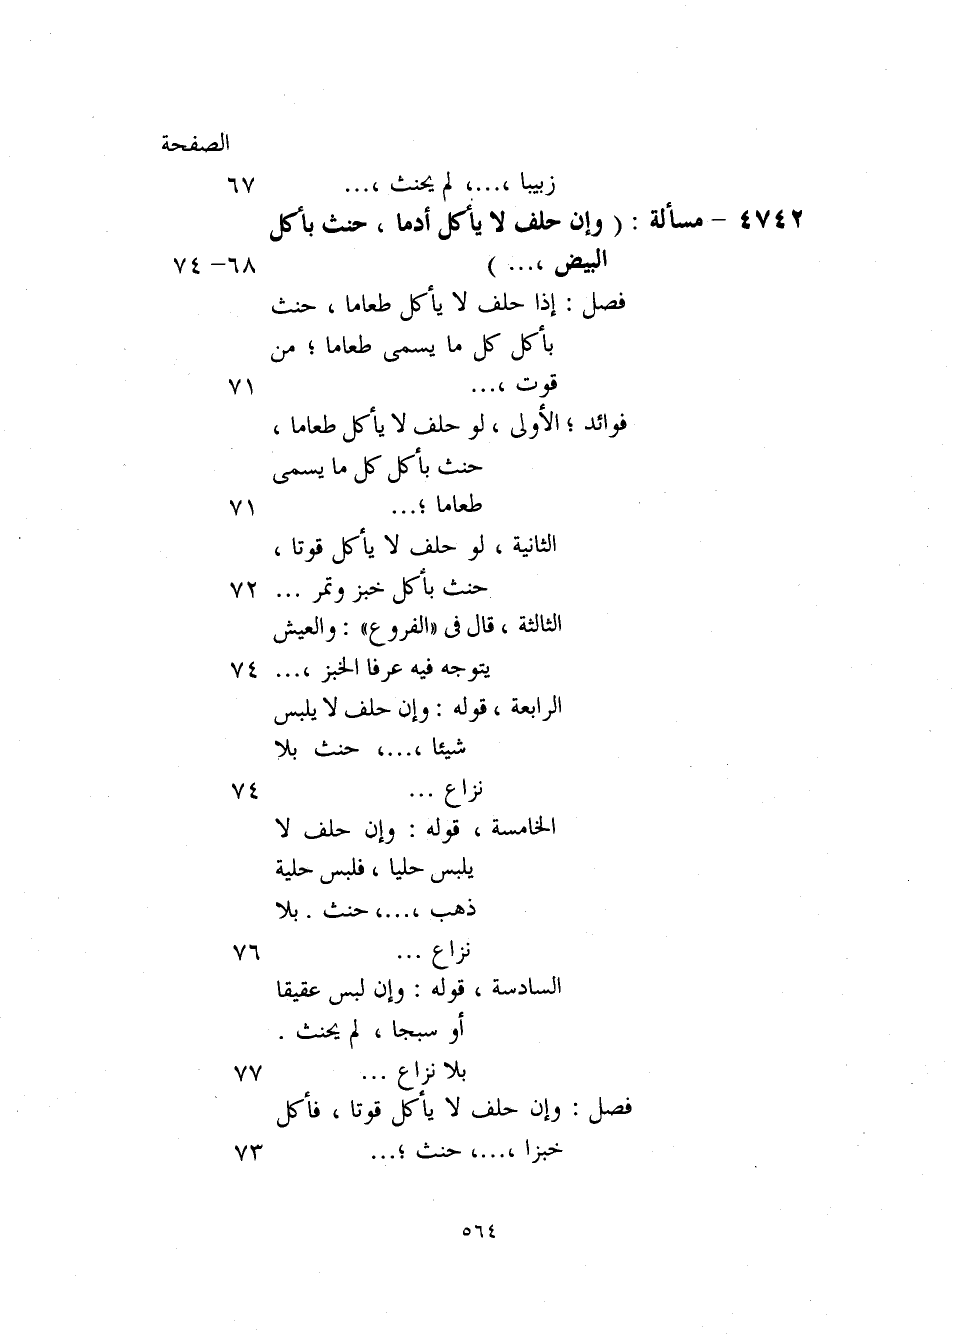 الصفحة
زبيبا ،...، لم يحنث ،... ٦٧
٤٧٤٢ – مسألة : ( وإن حلف لا يأكل أدما ، حنث بأكل
البيض ،... ) ٦٨– ٧٤
فصل : إذا حلف لا يأكل طعاما ، حنث
بأكل كل ما يسمى طعاما ؛ من
قوت ،... ٧١
فوائد ؛ الأولى ، لو حلف لا يأكل طعاما ،
حنث بأكل كل ما يسمى
طعاما ؛... ٧١
الثانية ، لو حلف لا يأكل قوتا ،
حنث بأكل خبز وتمر ... ٧٢
الثالثة ، قال فى «الفروع» : والعيش
يتوجه فيه عرفا الخبز ،... ٧٤
الرابعة ، قوله : وإن حلف لا يلبس
شيئا ،...، حنث بلا
نزاع ... ٧٤
الخامسة ، قوله : وإن حلف لا
يلبس حليا ، فلبس حلية
ذهب ،...، حنث . بلا
نزاع ... ٧٦
السادسة ، قوله : وإن لبس عقيقا
أو سبجا ، لم يحنث .
بلا نزاع ... ٧٧
فصل : وإن حلف لا يأكل قوتا ، فأكل
خبزا ،...، حنث ؛... ٧٣
٥٦٤